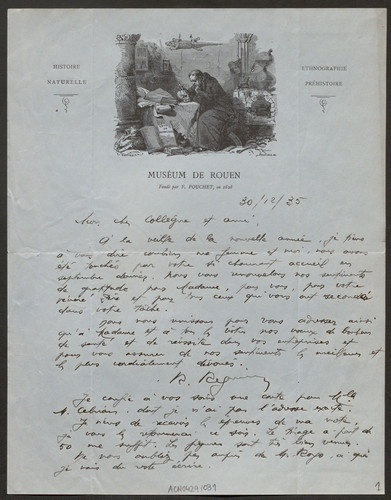 HISTOIRE
NATURELLE
ETHNOGRAPHIE
PRÉHISTOIRE
MUSÉUM DE ROUEN
Fondé par F. POUCHET, en 1828
30/12/35
Mon cher Collègue et ami,
A la veille de la nouvelle année, je tiens
à vous dire combien ma femme et moi, nous avons
été touchés par votre si charmant accueil en
septembre dernier, nous vous renouvelons nos sentiments
de gratitude pour Madame, pour vous, pour votre
père et pour tous ceux qui vous ont secondé
dans votre tâche.
Nous nous unissons pour vous adresser ainsi
qu'à Madame et à tous les vôtres nos vœux de bonheur
de santé et de réussite dans vos entreprises et
pour vous assurer de nos sentiments les meilleurs et
les plus cordialement dévoués.
Je confie à vos soins une carte pour Mlle
dont je n'ai pas l'adresse exacte.
Je viens de recevoir les épreuves de ma note,
je vous la ce soir. Le tirage à-part de
50 me suffit. Les figures sont très bien venues.
Ne nous oubliez pas auprès de M. à qui
je vais de suite écrire.
1